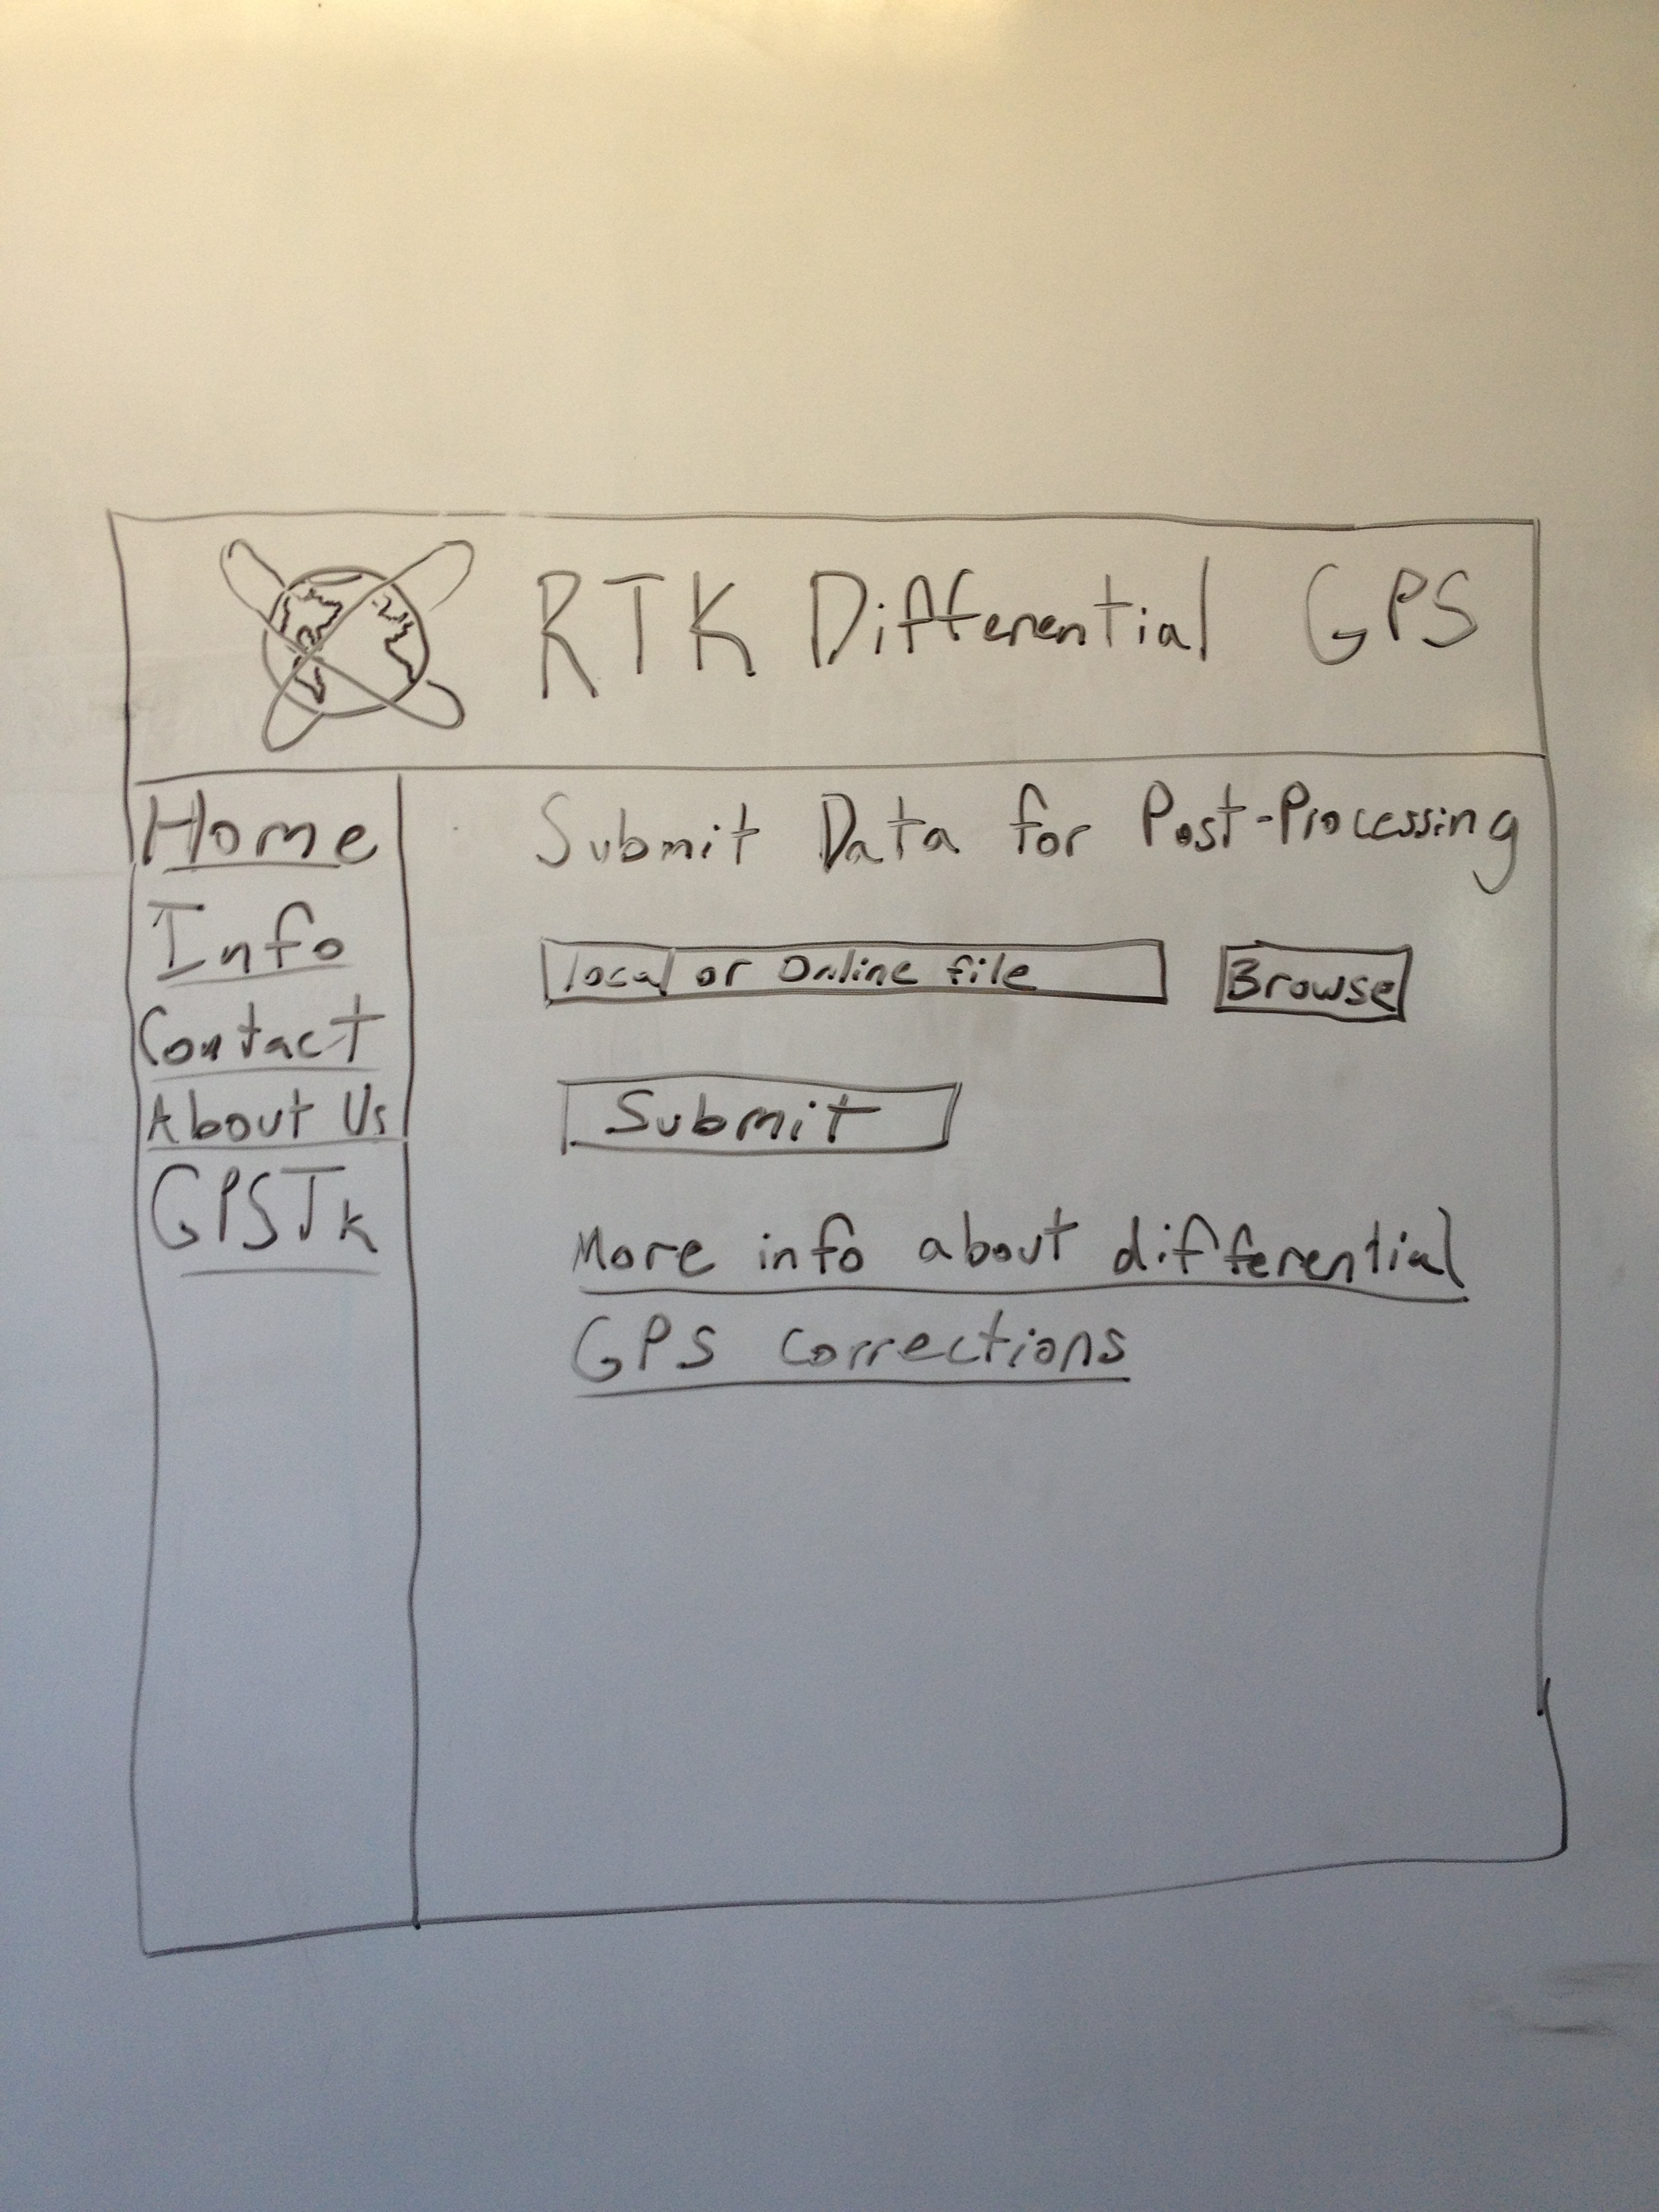 RTK Differential GPS
Home
Info
Contact
About Us
GPSTk
Submit Data for Post-Processing
local or Online file
Browse
Submit
More info about differential
GPS corrections